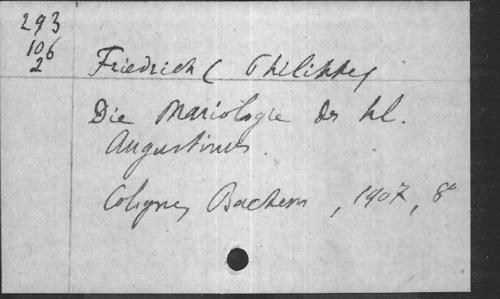 293
106
2
Friedrich (Philipp)
Die Mariologie des hl.
Augustinus.
Cologne, Bachem, 1907, 8°